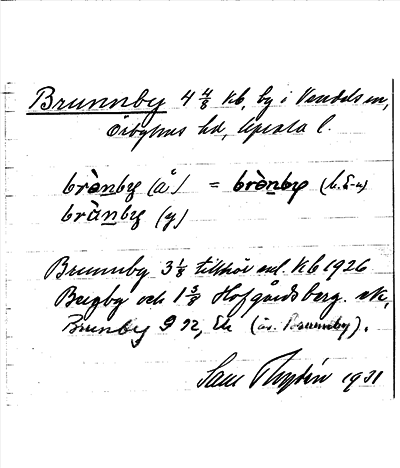 Brunnby 4 4/8 kb, by i Vendels sn,
Örbyhus hd, Upsala l.
brɔ̀nby (å) = brɔ̀nby
brùnby (y)
Brunnby 3 1/8 tillhör enl. Kb 1926
Bugby och 1 3/8 Hofgårdsberg. sk,
Brunby 9 92, Ek (äv. Brunnby).
1931